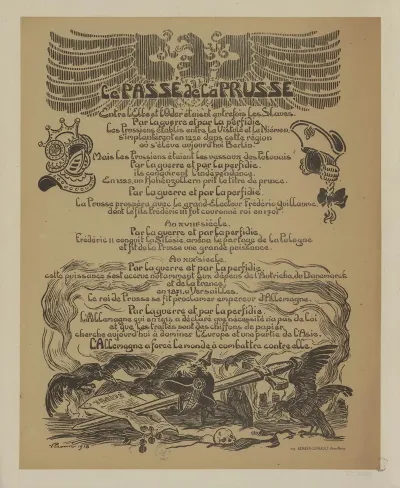 Le PASSÉ de La PRUSSE
Entre l'Elbe et l'Oder étaient autrefois les Slaves.
Par la guerre et par la perfidie,
les Prussiens établis entre la Vistule et le Niémen,
s'implantèrent en 1220 dans cette région
où s'élève aujourd'hui Berlin.
Mais les Prussiens étaient les vassaux des Polonais
Par la guerre et par la perfidie,
ils conquirent l'indépendance.
En un Hohenzollern prit le titre de prince.
Par la guerre et par la perfidie,
La Prusse prospéra avec le grand-Électeur Frédéric Guillaume,
dont le fils Frédéric fut couronné roi en 1701.
Au XVIIIe siècle,
Par la guerre et par la perfidie,
Frédéric II conquit la Silésie, amena le partage de la Pologne
et fit de la Prusse une grande puissance.
Au XIXe siècle,
Par la guerre et par la perfidie,
cette puissance s'est accrue notamment aux dépens de l'Autriche, du Danemarck
et de la France;
en 1871, à Versailles,
Le roi de Prusse se fit proclamer empereur d'Allemagne.
Par la guerre et par la perfidie,
L'Allemagne qui en 1914 a déclaré que nécessité n'a pas de loi
et que les traités sont des chiffons de papier,
cherche aujourd'hui à dominer l'Europe et une partie de l'Asie.
L'Allemagne a forcé le monde à combattre contre elle.
1918